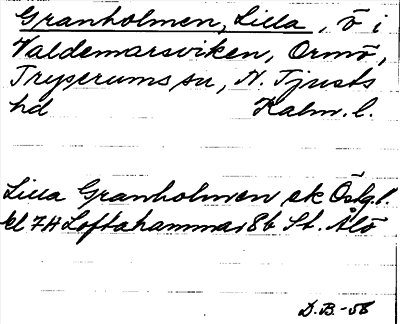 Granholmen, Lilla, ö i
Valdemarsviken, Ormö,
Tryserums sn, N. Tjusts
hd Kalm. l.
Lilla Granholmen ek Östgl.
bl 74 Loftahammar 8b St. Ålö
D.B.-58